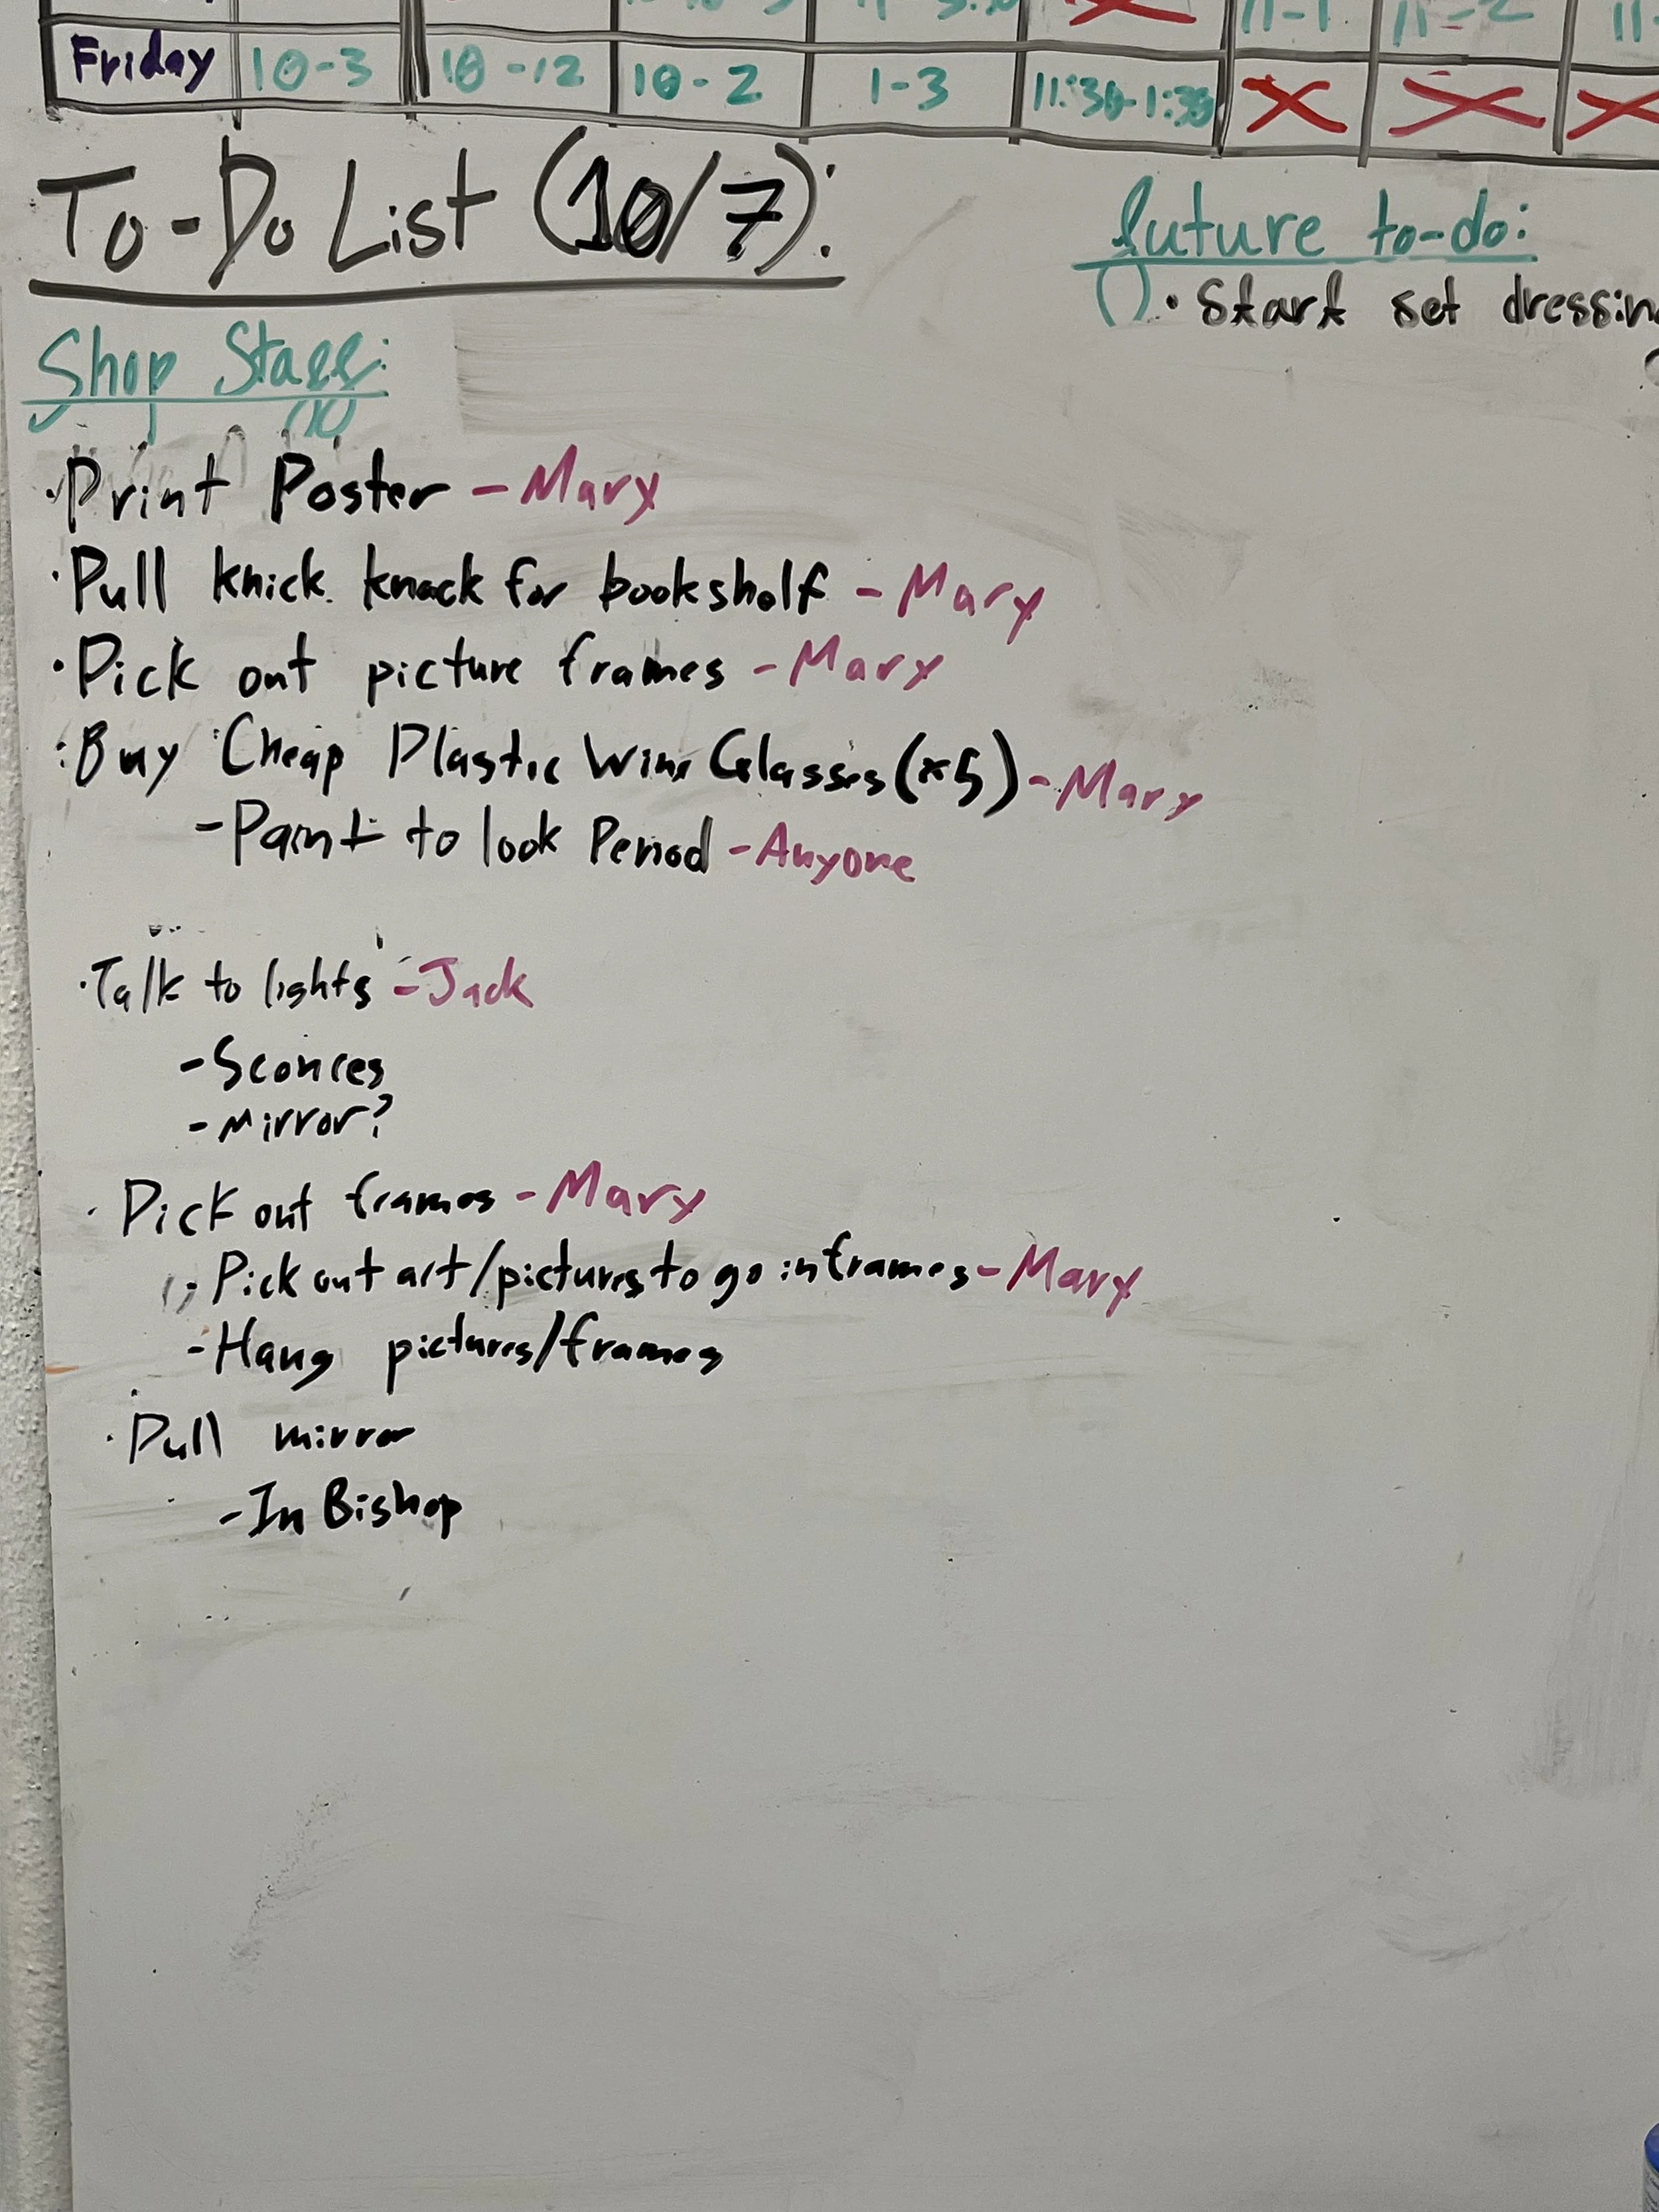 11-1 11-2
Friday 10-3 10-12 10-2 1-3 11:30-1:30 X X X
To-Do List (10/7):
future to-do:
• Start set dressing
Shop Staff:
• Print Poster - Mary
• Pull knick knack for bookshelf - Mary
• Pick out picture frames - Mary
• Buy Cheap Plastic Wine Glasses (x5) - Mary
- Paint to look Period - Anyone
• Talk to lights - Jack
- Sconces
- Mirror?
• Pick out frames - Mary
- Pick out art/pictures to go in frames - Mary
- Hang pictures/frames
• Pull mirror
- In Bishop